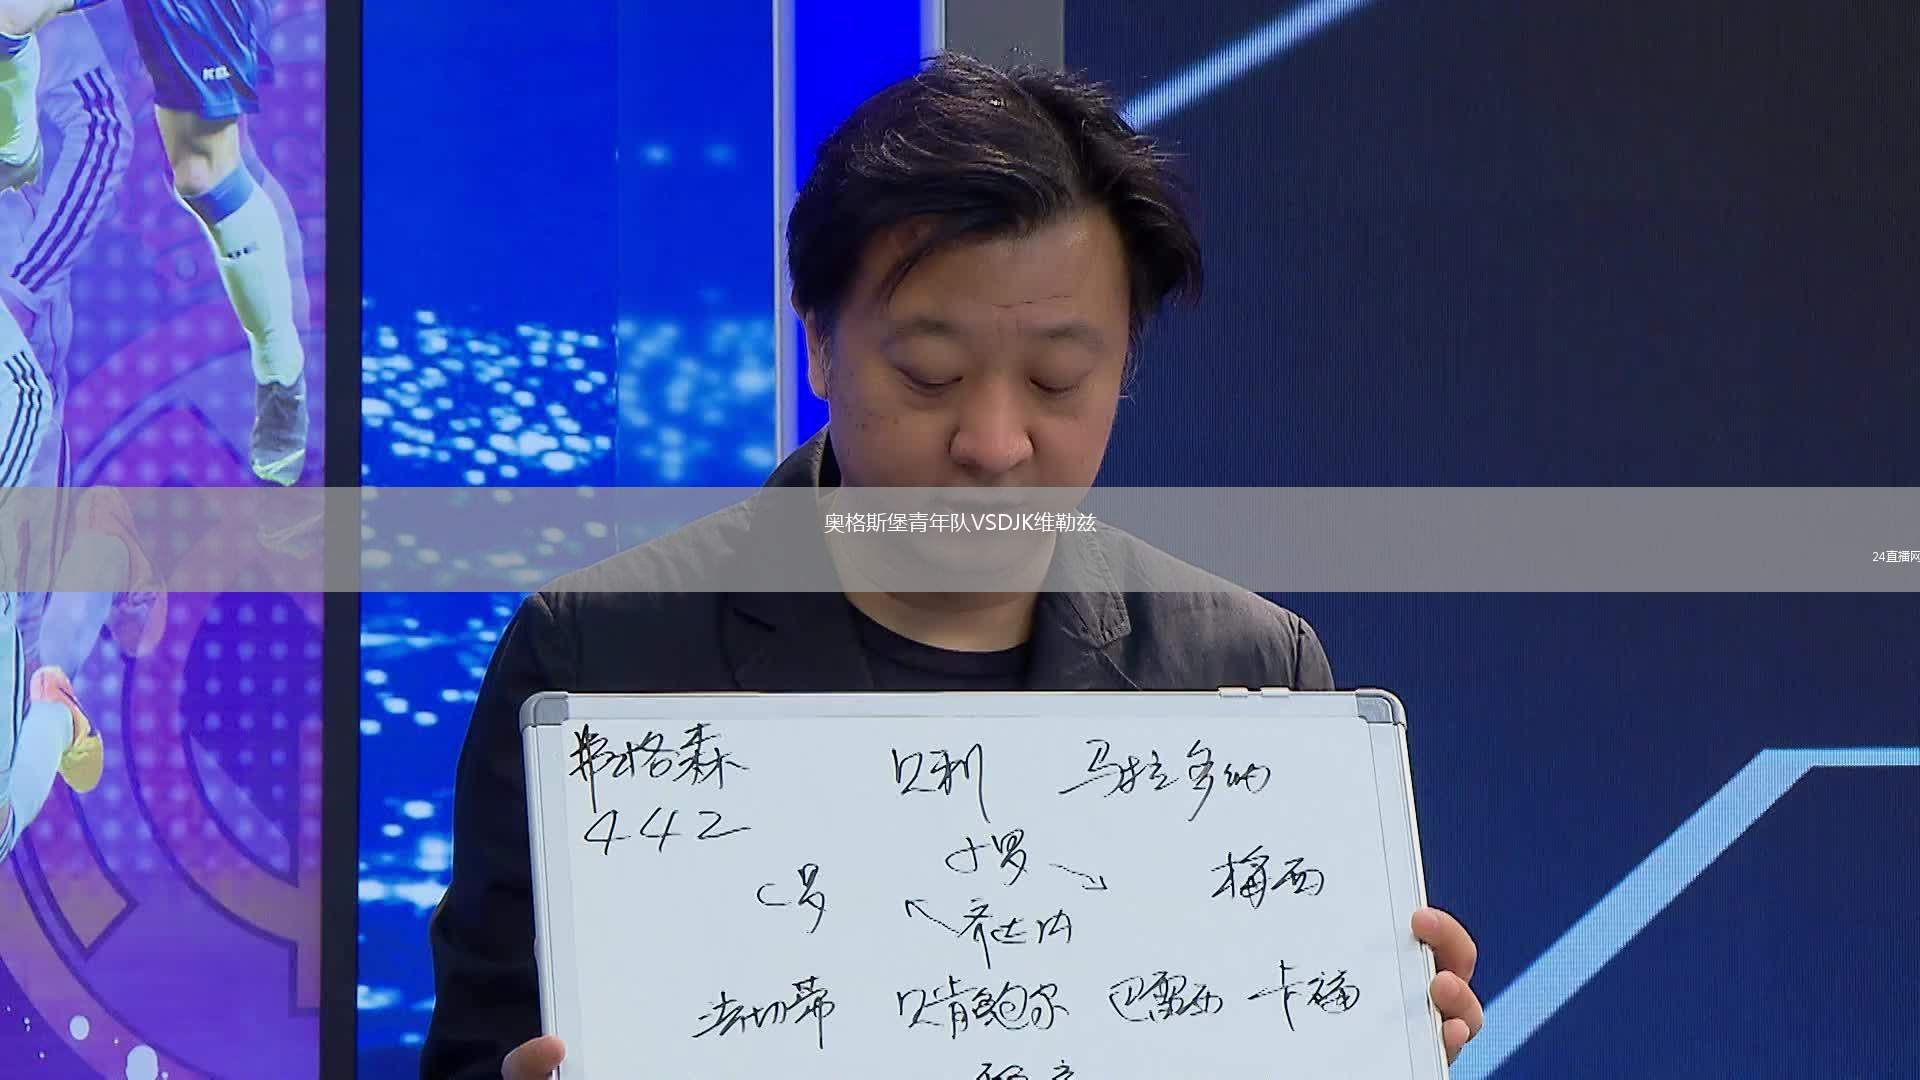 KELME
奥格斯堡青年队VSDJK维勒兹
24直播网
弗格森 贝利 马拉多纳
442
小罗
C罗 梅西
齐达内
法切蒂 贝肯鲍尔 巴雷西 卡福